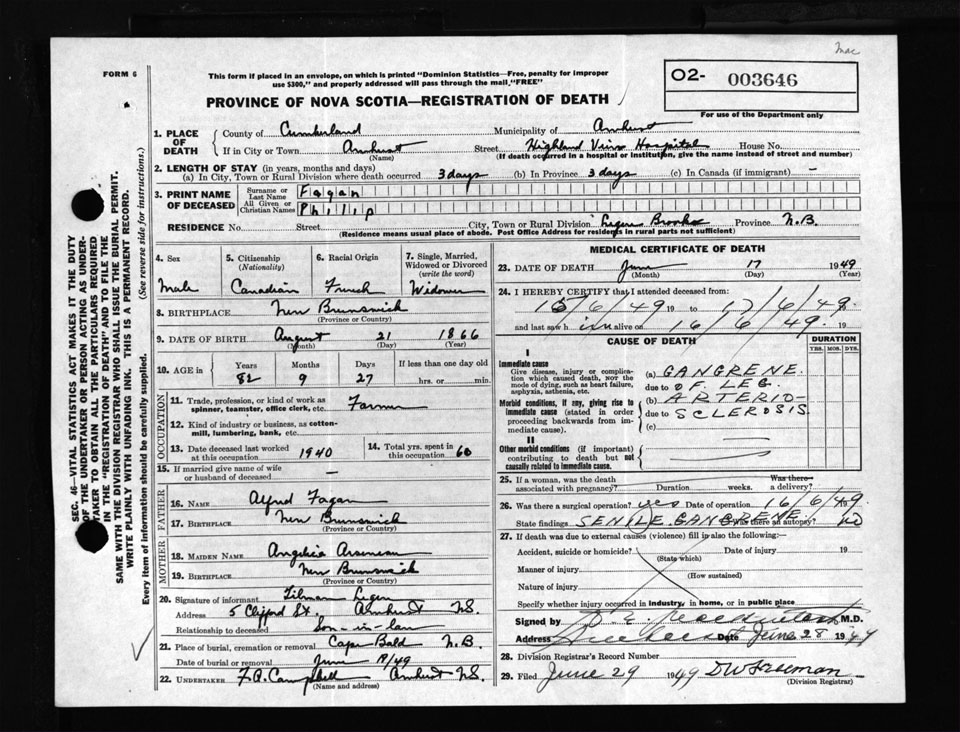 Mac
FORM 6
This form if placed in an envelope, on which is printed "Dominion Statistics—Free, penalty for improper
use $300," and properly addressed will pass through the mail, "FREE"
O2- 003646
PROVINCE OF NOVA SCOTIA—REGISTRATION OF DEATH
For use of the Department only
1. PLACE OF DEATH
County of Cumberland Municipality of Amherst
If in City or Town Amherst Street Highland View Hospital House No.
(Name) (If death occurred in a hospital or institution, give the name instead of street and number)
2. LENGTH OF STAY (in years, months and days)
(a) In City, Town or Rural Division where death occurred 3 days (b) In Province 3 days (c) In Canada (if immigrant) —
3. PRINT NAME OF DECEASED
Surname or Last Name Fagan
All Given or Christian Names Philip
RESIDENCE No. Street City, Town or Rural Division Brooks Province N.B.
(Residence means usual place of abode. Post Office Address for residents in rural parts not sufficient)
4. Sex
Male
5. Citizenship
(Nationality)
Canadian
6. Racial Origin
French
7. Single, Married,
Widowed or Divorced
(write the word)
Widower
8. BIRTHPLACE New Brunswick
(Province or Country)
9. DATE OF BIRTH August 21 1866
(Month) (Day) (Year)
10. AGE in Years Months Days If less than one day old
82 9 27 hrs. or min.
OCCUPATION
11. Trade, profession, or kind of work as
spinner, teamster, office clerk, etc. Farmer
12. Kind of industry or business, as cotton-
mill, lumbering, bank, etc.
13. Date deceased last worked
at this occupation 1940
14. Total yrs. spent in
this occupation 60
15. If married give name of wife
or husband of deceased —
FATHER
16. NAME Alfred Fagan
17. BIRTHPLACE New Brunswick
(Province or Country)
MOTHER
18. MAIDEN NAME Angelica Arseneau
19. BIRTHPLACE New Brunswick
(Province or Country)
20. Signature of informant Tilman Leger
Address 5 Clifford St. Amherst NS.
Relationship to deceased Son-in-law
21. Place of burial, cremation or removal Cape Bald N.B.
Date of burial or removal June /49
22. UNDERTAKER F.A. Campbell Amherst NS.
(Name and address)
MEDICAL CERTIFICATE OF DEATH
23. DATE OF DEATH June 17 1949
(Month) (Day) (Year)
24. I HEREBY CERTIFY that I attended deceased from:
15/6/49 19 to 17/6/49. 19
and last saw h im alive on 16/6/49. 19
CAUSE OF DEATH
DURATION
YRS. MOS. DYS.
I
Immediate cause
Give disease, injury or complica-
tion which caused death, NOT the
mode of dying, such as heart failure,
asphyxia, asthenia, etc.
(a) GANGRENE.
due to OF LEG.
Morbid conditions, if any, giving rise to
immediate cause (stated in order
proceeding backwards from im-
mediate cause).
(b) ARTERIO-
due to SCLEROSIS
(c)
II
Other morbid conditions (if important)
contributing to death but not
causally related to immediate cause.
25. If a woman, was the death Was there
associated with pregnancy? Duration weeks. a delivery?
26. Was there a surgical operation? yes Date of operation 16/6/49
State findings SENILE GANGRENE. Was there an autopsy? No
27. If death was due to external causes (violence) fill in also the following:—
Accident, suicide or homicide? Date of injury 19
(State which)
Manner of injury
(How sustained)
Nature of injury
Specify whether injury occurred in industry, in home, or in public place
Signed by M.D.
Address Amherst Date June 28 1949
28. Division Registrar's Record Number
29. Filed June 29 1949 DW Freeman
(Division Registrar)
SEC. 46—VITAL STATISTICS ACT MAKES IT THE DUTY
OF THE UNDERTAKER OR PERSON ACTING AS UNDER-
TAKER TO OBTAIN ALL THE PARTICULARS REQUIRED
IN THE "REGISTRATION OF DEATH" AND TO FILE THE
SAME WITH THE DIVISION REGISTRAR WHO SHALL ISSUE THE BURIAL PERMIT.
WRITE PLAINLY WITH UNFADING INK. THIS IS A PERMANENT RECORD.
Every item of information should be carefully supplied. (See reverse side for instructions.)